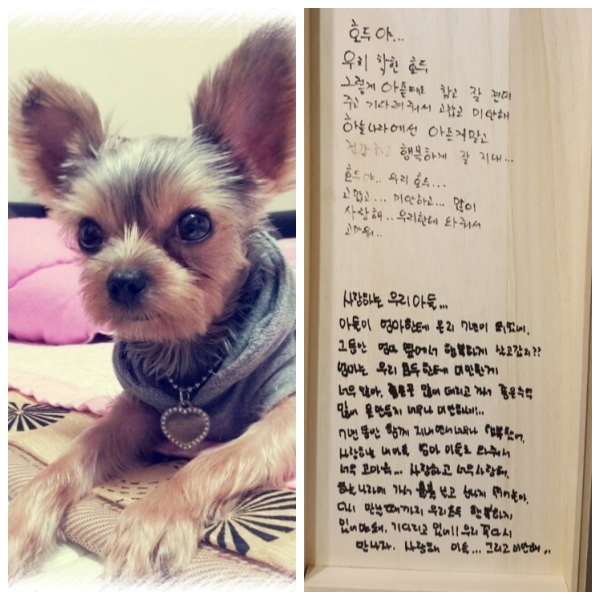 호두야...
우리 착한 호두
그렇게 아픈데도 참고 잘 견뎌
주고 기다려줘서 고맙고 미안해
하늘나라에선 아픈거말고
건강하고 행복하게 잘 지내...
호두야.. 우리 호두...
고맙고... 미안하고... 많이
사랑해.. 우리한테 와줘서
고마워..
사랑하는 우리아들...
아들이 엄마한테 온지 7년이 되었네.
그동안 엄마 옆에서 행복하게 살고갔지??
엄마는 우리 호두한테 미안한게
너무 많아. 좋은곳 많이 데리고 가서 좋은추억
많이 못만들어 너무나 미안해...
7년동안 함께 지내면서 너무나 행복했어.
사랑하는 내새끼 엄마 아들로 와줘서
너무 고마워... 사랑하고 너무사랑해.
하늘나라에 가서 잘 놀고
다시 만날때까지 우리호두 행복하게
있어야돼. 기다리고 있어!! 우리 꼭다시
만나자. 사랑해 아들... 그리고미안해..